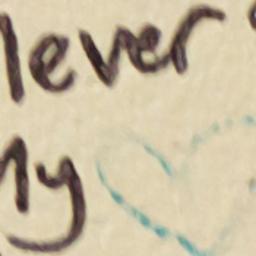 lever
My